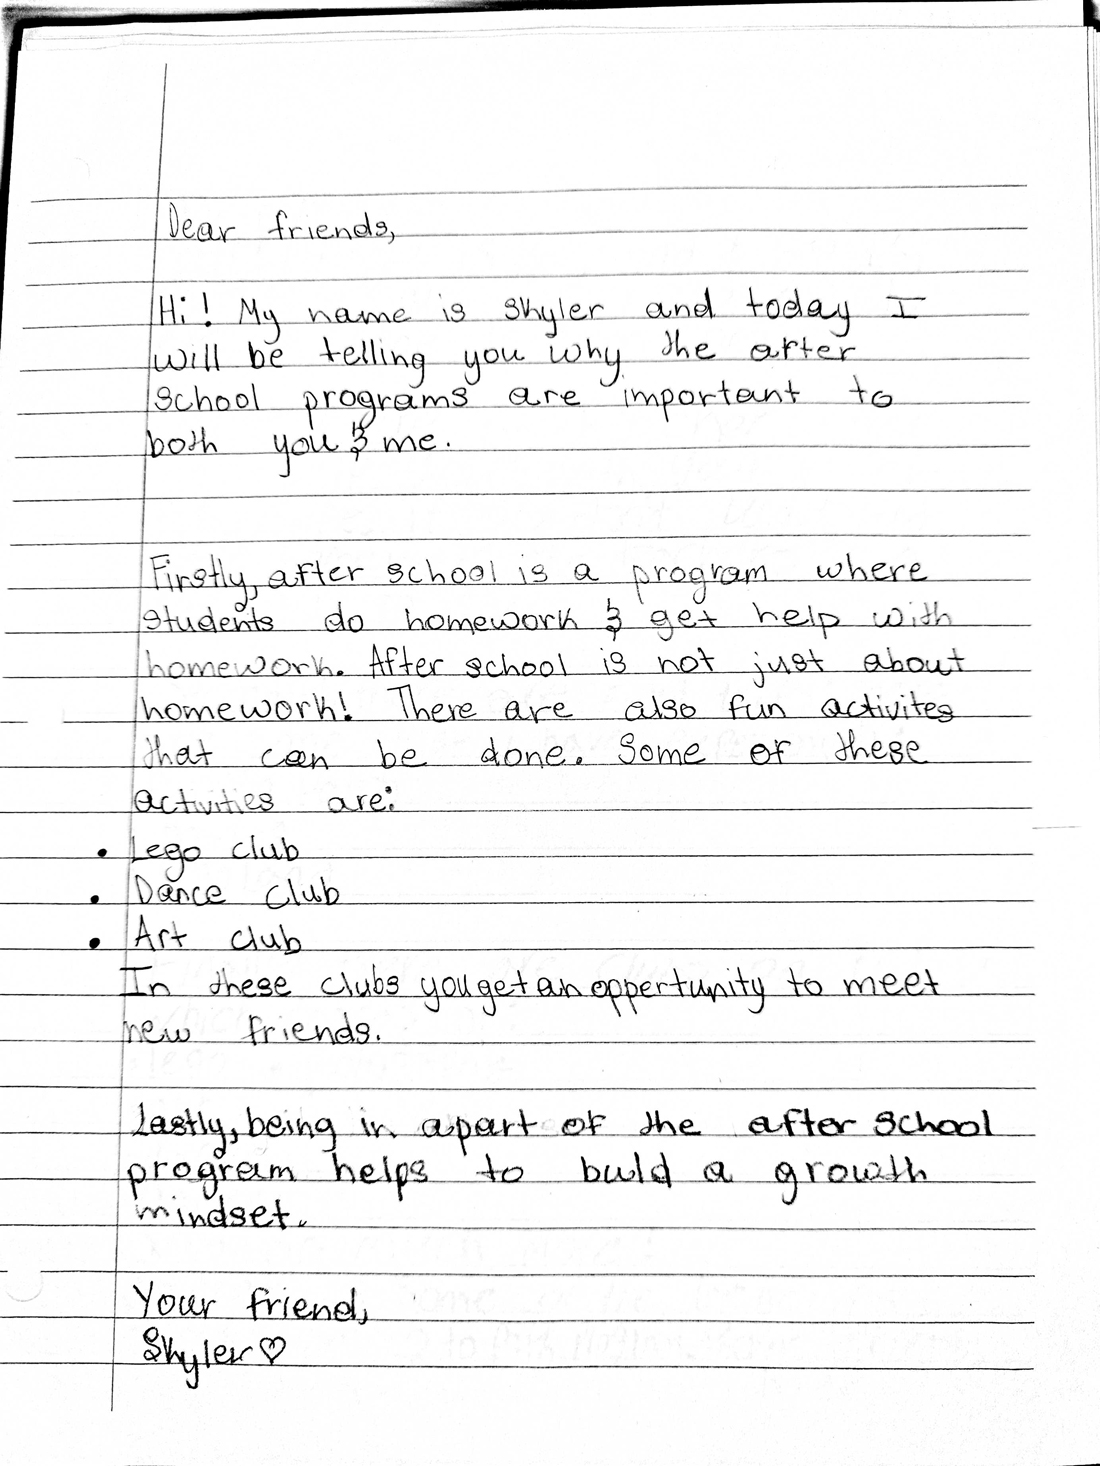 Dear friends,
Hi! My name is Skyler and today I
will be telling you why the after
school programs are important to
both you & me.
Firstly, after school is a program where
students do homework & get help with
homework. After school is not just about
homework! There are also fun activites
that can be done. Some of these
activities are:
• Lego club
• Dance club
• Art club
In these clubs you get an oppertunity to meet
new friends.
Lastly, being in apart of the after school
program helps to build a growth
mindset.
Your friend,
Skyler♡